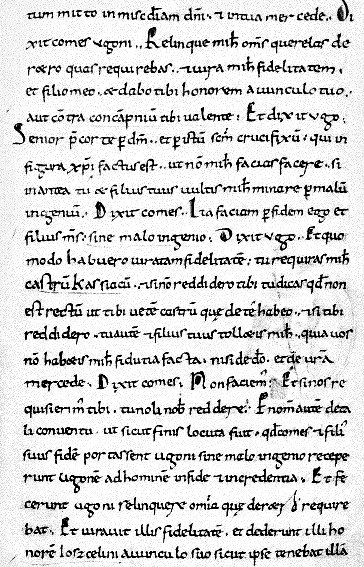 tum mitto in misc̄diam dn̄i, & in tua mercede. Di
xit comes ugoni. Relinque mihi om̄s querelas de
retro quas requirebas, & iura mihi fidelitatem,
et filio meo, & dabo tibi honorem avunculo tuo,
aut contra concāpniū tibi valente. Et dixit ugo.
Senior p̄cor te p dm̄, et p istū scm̄ crucifixū, qui in
figura xp̄i factus est, ut nō mihi facias facere, si
in antea tu & filius tuus vultis mihi minare p malū
ingeniū. Dixit comes. Ita faciam p fidem ego et
filius ms̄, sine malo ingenio. Dixit ugo. Et quo
modo habuero iuratam fidelitatē, tu requiras mihi
castrū Kassiacū, & si nō reddidero tibi tu dicas qd̄ non
est rectū ut tibi uetē castrū que de te habeo, & si tibi
reddidero, tu aute & filius tuus tolletis mihi, quia uos
nō habetis mihi fidutia facta, nisi de do, et de ura
mercede. Dixit comes, Non faciem. Et si nos re
quiserim tibi, tu noli nob reddere. Et nom̄ aute de ta
li conuentu, ut sicut finis locuta fuit, qd comes & filii
suus fidē portassent ugoni sine malo ingenio recepe
runt ugonē ad hominē in fide & in credentia. Et fe
cerunt ugoni relinquere omia que de retro require
bat. Et iuravit illis fidelitatē, et dederunt illi ho
norē Ioszcelini auunculo suo sicut ipse tenebat illā